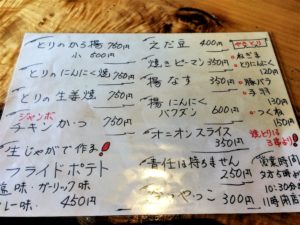 とりのから揚 750円
小 500円
とりのにんにく焼 750円
とりの生姜焼 750円
ジャンボ
チキンかつ 750円
生じゃがで作る!
フライドポテト
塩味・ガーリック味
カレー味 450円
えだ豆 400円
焼きピーマン 350円
揚なす 350円
揚にんにく
バクダン 600円
オニオンスライス
350円
責任は持ちません
250円
やっこ 300円
やきとり
ねぎま
とりにんにく
120円
豚バラ
130円
つくね
150円
焼とりは
営業時間
夕方5時から
10:30
11時閉店